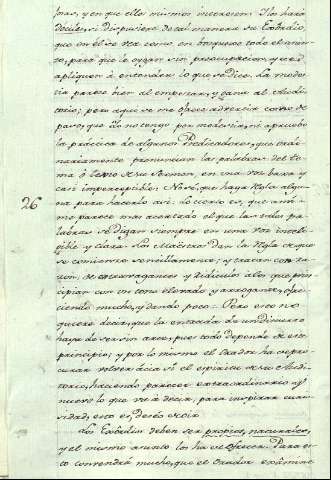 mas, y en que ellos mismos interesen. Nos hará
dóciles, si dispusiere de tal manera su Exordio,
que en él se vea como en bosquejo todo el asun-
to, para que le oygan sin preocupacion, y se
apliquen à entender lo que se dice. La modes-
tia parece bien al empezar, y gana al Audi-
torio; pero aqui se me ofrece advertir como de
paso, que Yo no tengo por modestia, ni apruebo
la práctica de algunos Predicadores, que ordi-
nariamente pronuncian las palabras del te-
ma ò texto de su Sermon, en una voz baxa y
casi imperceptible. No sé, que haya regla algu-
na para hacerlo asi: lo cierto es, que à mi
mo parece mas acertado el que las tales pa-
labras se digan siempre en una voz intele-
gible y clara. Los Maestros dan la regla de que
se comience sencillamente; y tratan con ra-
zon, de extravagantes y ridiculos à los que prin-
cipian con un tono elevado y arrogante, ofre-
ciendo mucho, y dando poco. Pero esto no
quiere decir, que la entrada de un discurso
haya de ser sin arte, pues todo depende de este
principio; y por lo mismo el Orador ha de pro-
curar
haciendo parecer extraordinario y
nuevo lo que va à decir, para inspirar curio-
sidad, esto es, deseo de oir.
26
Los Exordios deben ser propios, naturales,
y el mismo asunto los ha de ofrecer. Para es-
to convendrá mucho, que el Orador examine